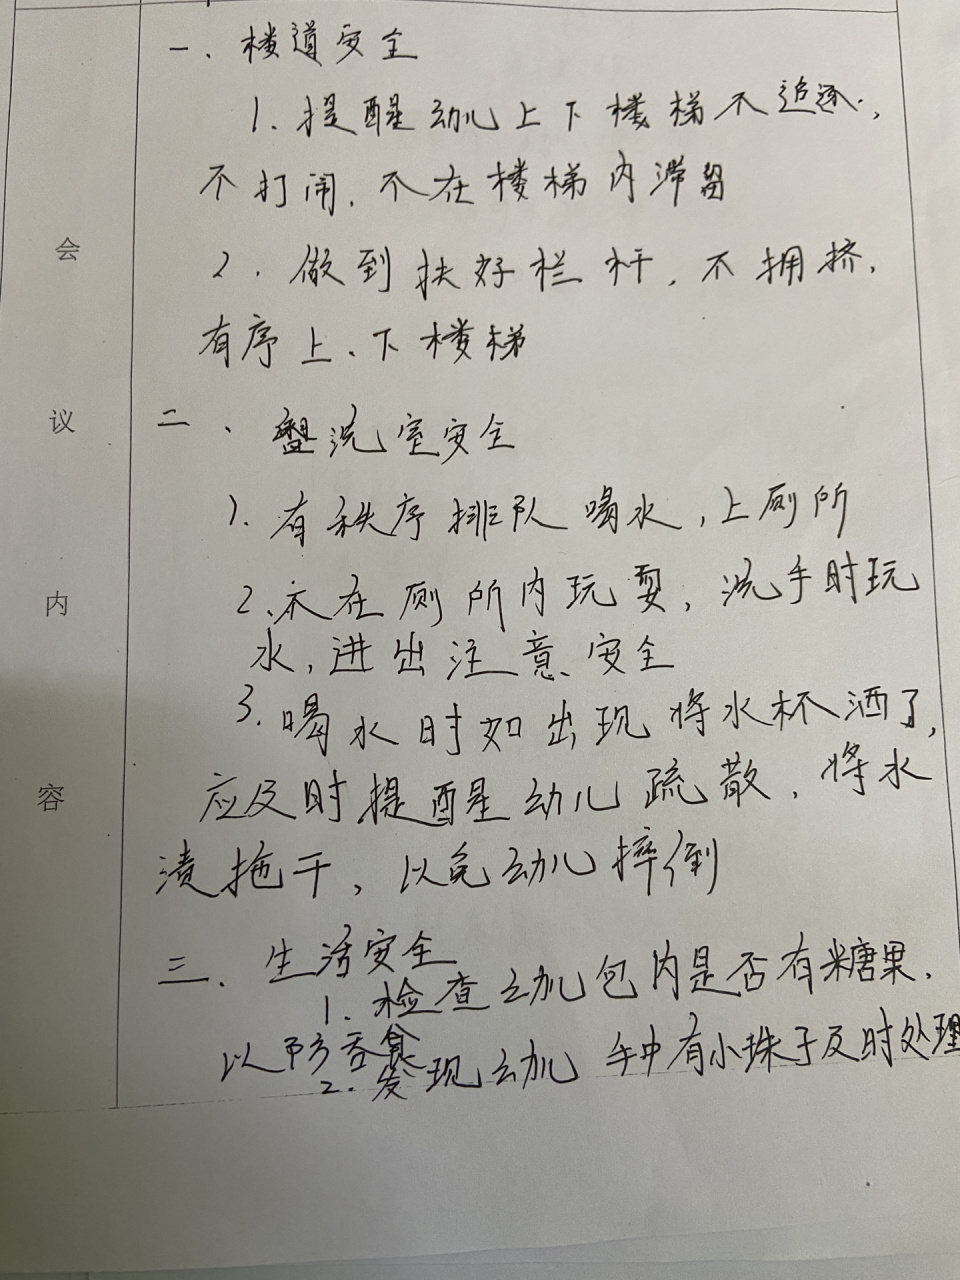 一、楼道安全
1、提醒幼儿上下楼梯不追逐,
不打闹、不在楼梯内滞留
2、做到扶好栏杆、不拥挤、
有序上、下楼梯
二、盥洗室安全
1、有秩序排队喝水,上厕所
2、不在厕所内玩耍,洗手时玩
水,进出注意安全
3、喝水时如出现将水杯洒了,
应及时提醒幼儿疏散、将水
渍拖干,以免幼儿摔倒
三、生活安全
1、检查幼儿包内是否有糖果、
以防吞食
2、发现幼儿手中有小珠子及时处理
会
议
内
容